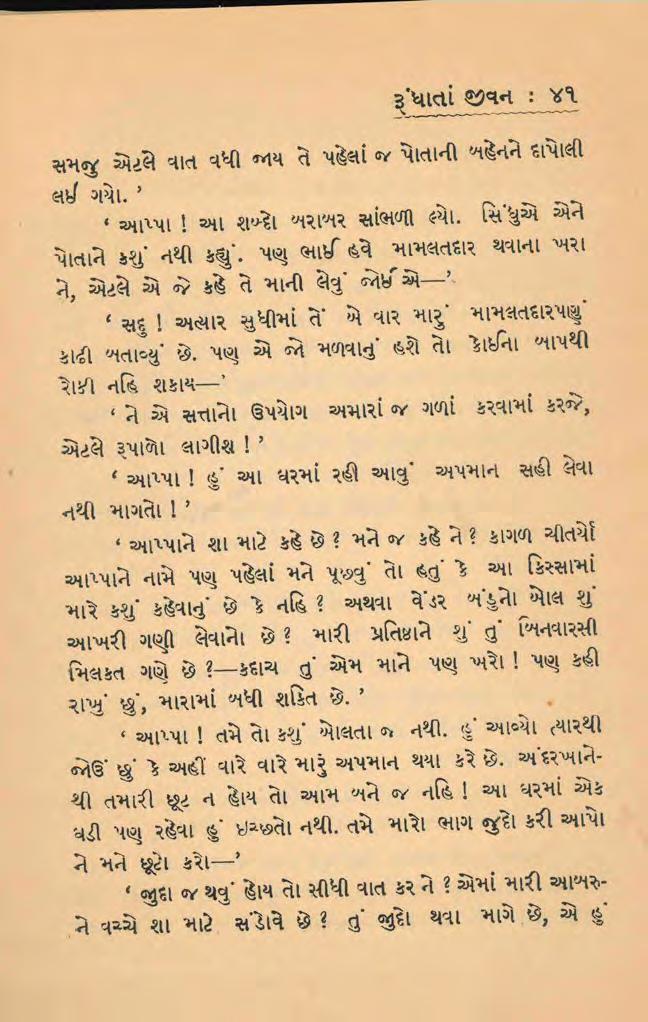 રૂંધાતાં જીવન : ૪૧
સમજુ એટલે વાત વધી જાય તે પહેલાં જ પોતાની બહેનને દાપોલી
લઈ ગયો. ’
‘ આપ્પા ! આ શબ્દો બરાબર સાંભળી લ્યો. સિંધુએ એને
પોતાને કશું નથી કહ્યું. પણ ભાઈ હવે મામલતદાર થવાના ખરા
ને, એટલે એ જે કહે તે માની લેવું જોઈ એ—’
‘ સદુ ! અત્યાર સુધીમાં તેં બે વાર મારું મામલતદારપણું
કાઢી બતાવ્યું છે. પણ એ જો મળવાનું હશે તો કોઈના બાપથી
રોકી નહિ શકાય—’
‘ ને એ સત્તાનો ઉપયોગ અમારાં જ ગળાં કરવામાં કરજે,
એટલે રૂપાળો લાગીશ ! ’
‘ આપ્પા ! હું આ ઘરમાં રહી આવું અપમાન સહી લેવા
નથી માગતો ! ’
‘ આપ્પાને શા માટે કહે છે ? મને જ કહે ને ? કાગળ ચીતર્યો
આપ્પાને નામે પણ પહેલાં મને પૂછવું તો હતું કે આ કિસ્સામાં
મારે કશું કહેવાનું છે કે નહિ ? અથવા વેંડર બંડુનો બોલ શું
આખરી ગણી લેવાનો છે ? મારી પ્રતિષ્ઠાને શું તું બિનવારસી
મિલકત ગણે છે ?—કદાચ તું એમ માને પણ ખરો ! પણ કહી
રાખું છું, મારામાં બધી શક્તિ છે. ’
‘ આપ્પા ! તમે તો કશું બોલતા જ નથી. હું આવ્યો ત્યારથી
જોઉં છું કે અહીં વારે વારે મારું અપમાન થયા કરે છે. અંદરખાને-
થી તમારી છૂટ ન હોય તો આમ બને જ નહિ ! આ ઘરમાં એક
ઘડી પણ રહેવા હું ઇચ્છતો નથી. તમે મારો ભાગ જુદો કરી આપો
ને મને છૂટો કરો—’
‘ જુદા જ થવું હોય તો સીધી વાત કર ને ? એમાં મારી આબરુ-
ને વચ્ચે શા માટે સંડોવે છે ? તું જુદો થવા માગે છે, એ હું